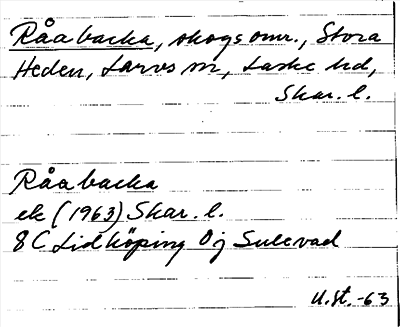 Råabacka, skogsomr., Stora
Heden, Larvs sn, Laske hd,
Skar. l.
Råabacka
ek (1963) Skar. l.
8C Lidköping 0j Sulevad
U.St. -63